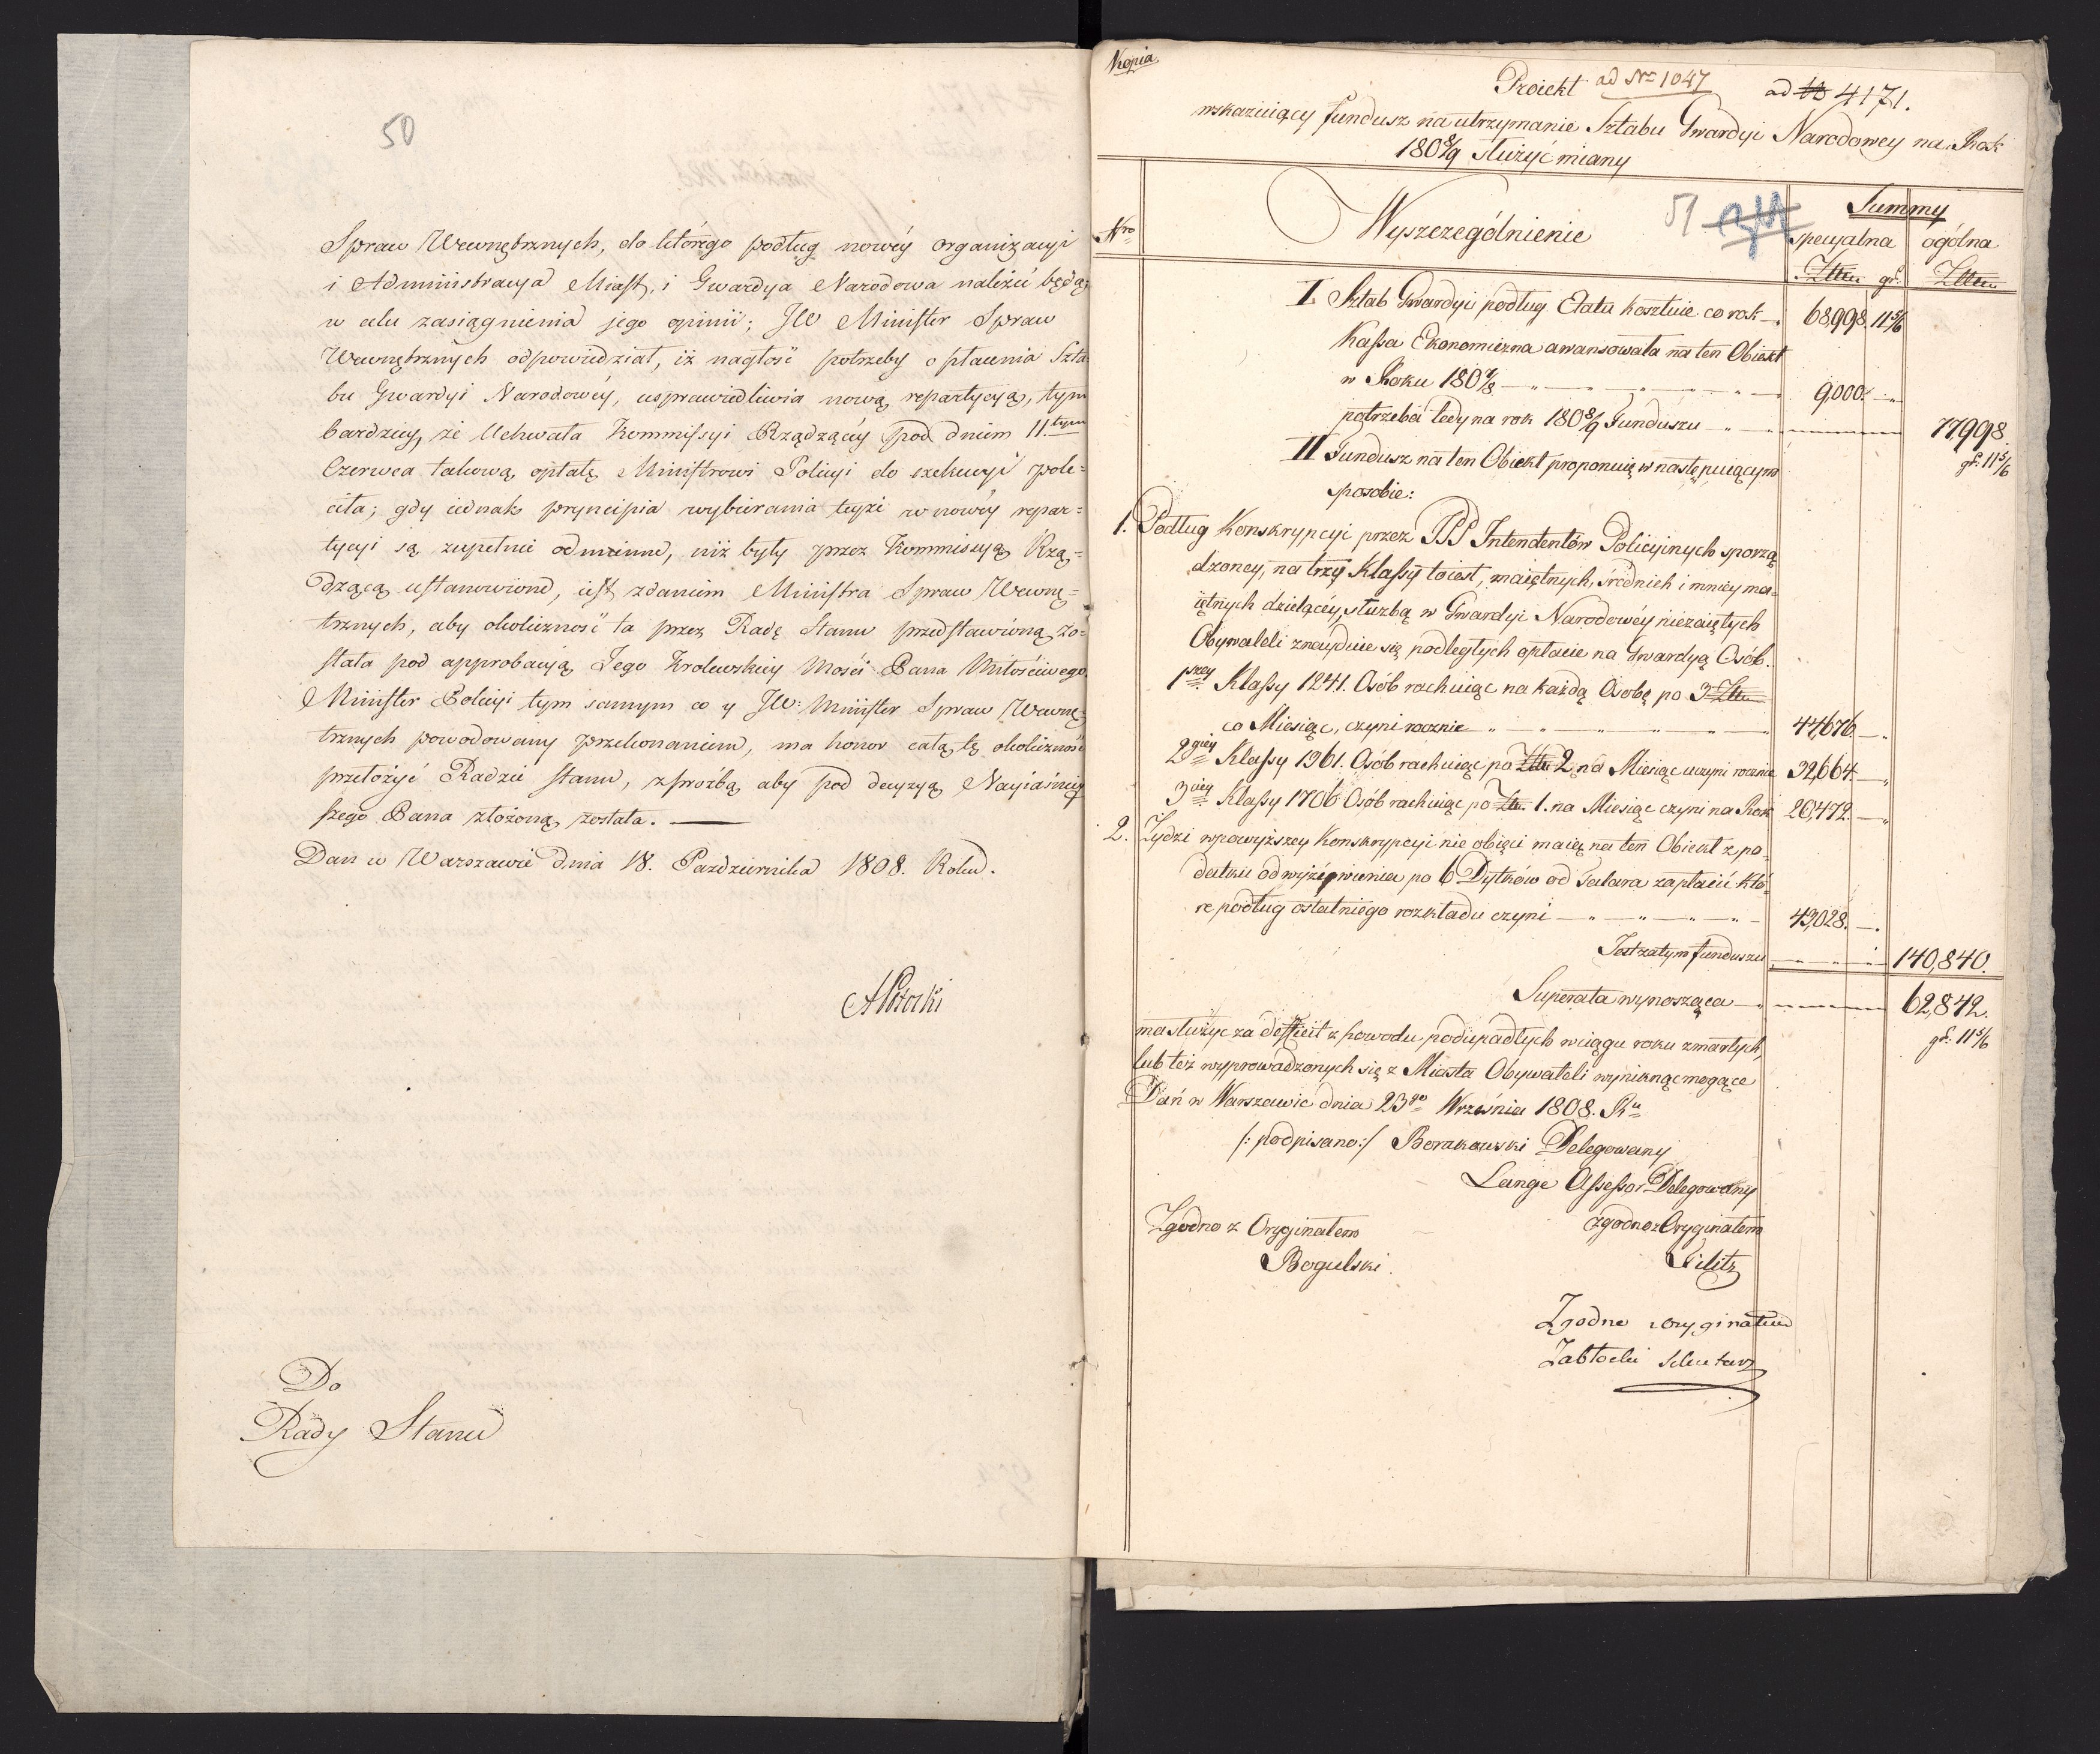 50
Spraw Wewnętrznych, do którego podług nowéy organizacyi
i Administracya Miast, i Gwardya Narodowa należéć będą,
w celu zasiągnienia jego opinii; JW Minister Spraw
Wewnętrznych odpowiedział, iż nagłość potrzeby opłacenia Szta
bu Gwardyi Narodowéy, usprawiedliwia nową repartycyą, tym
bardziey, że Uchwała Kommissyi Rządzącéy pod dniem 11.tym
Czerwca takową opłatę Ministrowi Policyi do exekucyi pole=
ciła; gdy iednak pryncipia wybierania teyże w nowéy repar=
tycyi są zupełnie odmienne, niż były przez Kommissyą Rzą=
dzącą ustanowione, iest zdaniem Ministra Spraw Wewnę=
trznych, aby okoliczność ta przez Radę Stanu przedstawioną zo=
stała pod approbacyą Jego Krolewskiey Mości Pana Miłościwego.
Minister Policyi tym samym co y JW: Minister Spraw Wewnę=
trznych powodowany przekonaniem, ma honor całą tę okoliczność
przełożyć Radzie Stanu, z prożbą aby pod decyzyą Nayiaśniey
szego Pana złożoną została. —
Dan w Warszawie dnia 18. Pazdziernika 1808. Roku.
APotocki
Do
Rady Stanu
Kopia
Proiekt ad Nro 1047 ad No 4171.
wskazuiący fundusz na utrzymanie Sztabu Gwardyi Narodowey na Rok
1808/9 służyć miany
Nro Wyszczególnienie 51 Summy
specyalna ogólna
Złtu gr. Złtu
I. Sztab Gwardyi podług Etatu kosztuie co rok 68,998. 11 5/6
Kassa Ekonomiczna awansowała na ten Obiekt
w Roku 1807/8 9,000.
potrzeba tedy na rok 1808/9 Funduszu 77,998.
gr. 11 5/6
II Fundusz na ten Obiekt proponuię w następuiącym
sposobie:
1. Podług Konskrypcyi przez PPP Intendentów Policyinych sporzą
dzoney, na trzy Klassy to iest, maiętnych, śrzednich i mniéy ma=
iętnych dzielącéy, służbą w Gwardyi Narodowéy niezaiętych
Obywateli znayduie się podległych opłacie na Gwardyą Osób.
1szey Klassy 1241. Osób rachuiąc na każdą Osobę po 3 Złtu
co Miesiąc, czyni rocznie 44,676.
2giey Klassy 1361. Osób rachuiąc po Złtu 2 na Miesiąc uczyni rocznie 32,664
3ciey Klassy 1706 Osób rachuiąc po Złt. 1. na Miesiąc czyni na Rok 20,472.
2. Zydzi w powyższey Konskrypcyi nie obięci maią na ten Obiekt z po=
datku od wyżywienia po 6 Dytków od Talara zapłacić któ=
re podług ostatniego rozkładu czyni 43,028.
Jest zatym funduszu 140,840.
Superata wynosząca 62,842.
gr. 11 5/6
ma służyc za deficit z powodu podupadłych w ciągu roku zmarłych,
lub też wyprowadzonych się z Miasta Obywateli wyniknąc mogące
Dań w Warszawie dnia 23go Września 1808. Ru
/: podpisano :/ Borakowski Delegowany
Lange Assessor Delegowany
Zgodno z Oryginałem zgodno z Oryginałem
Bogulski.
Zgodno z oryginałem
Zabłocki Sekretarz